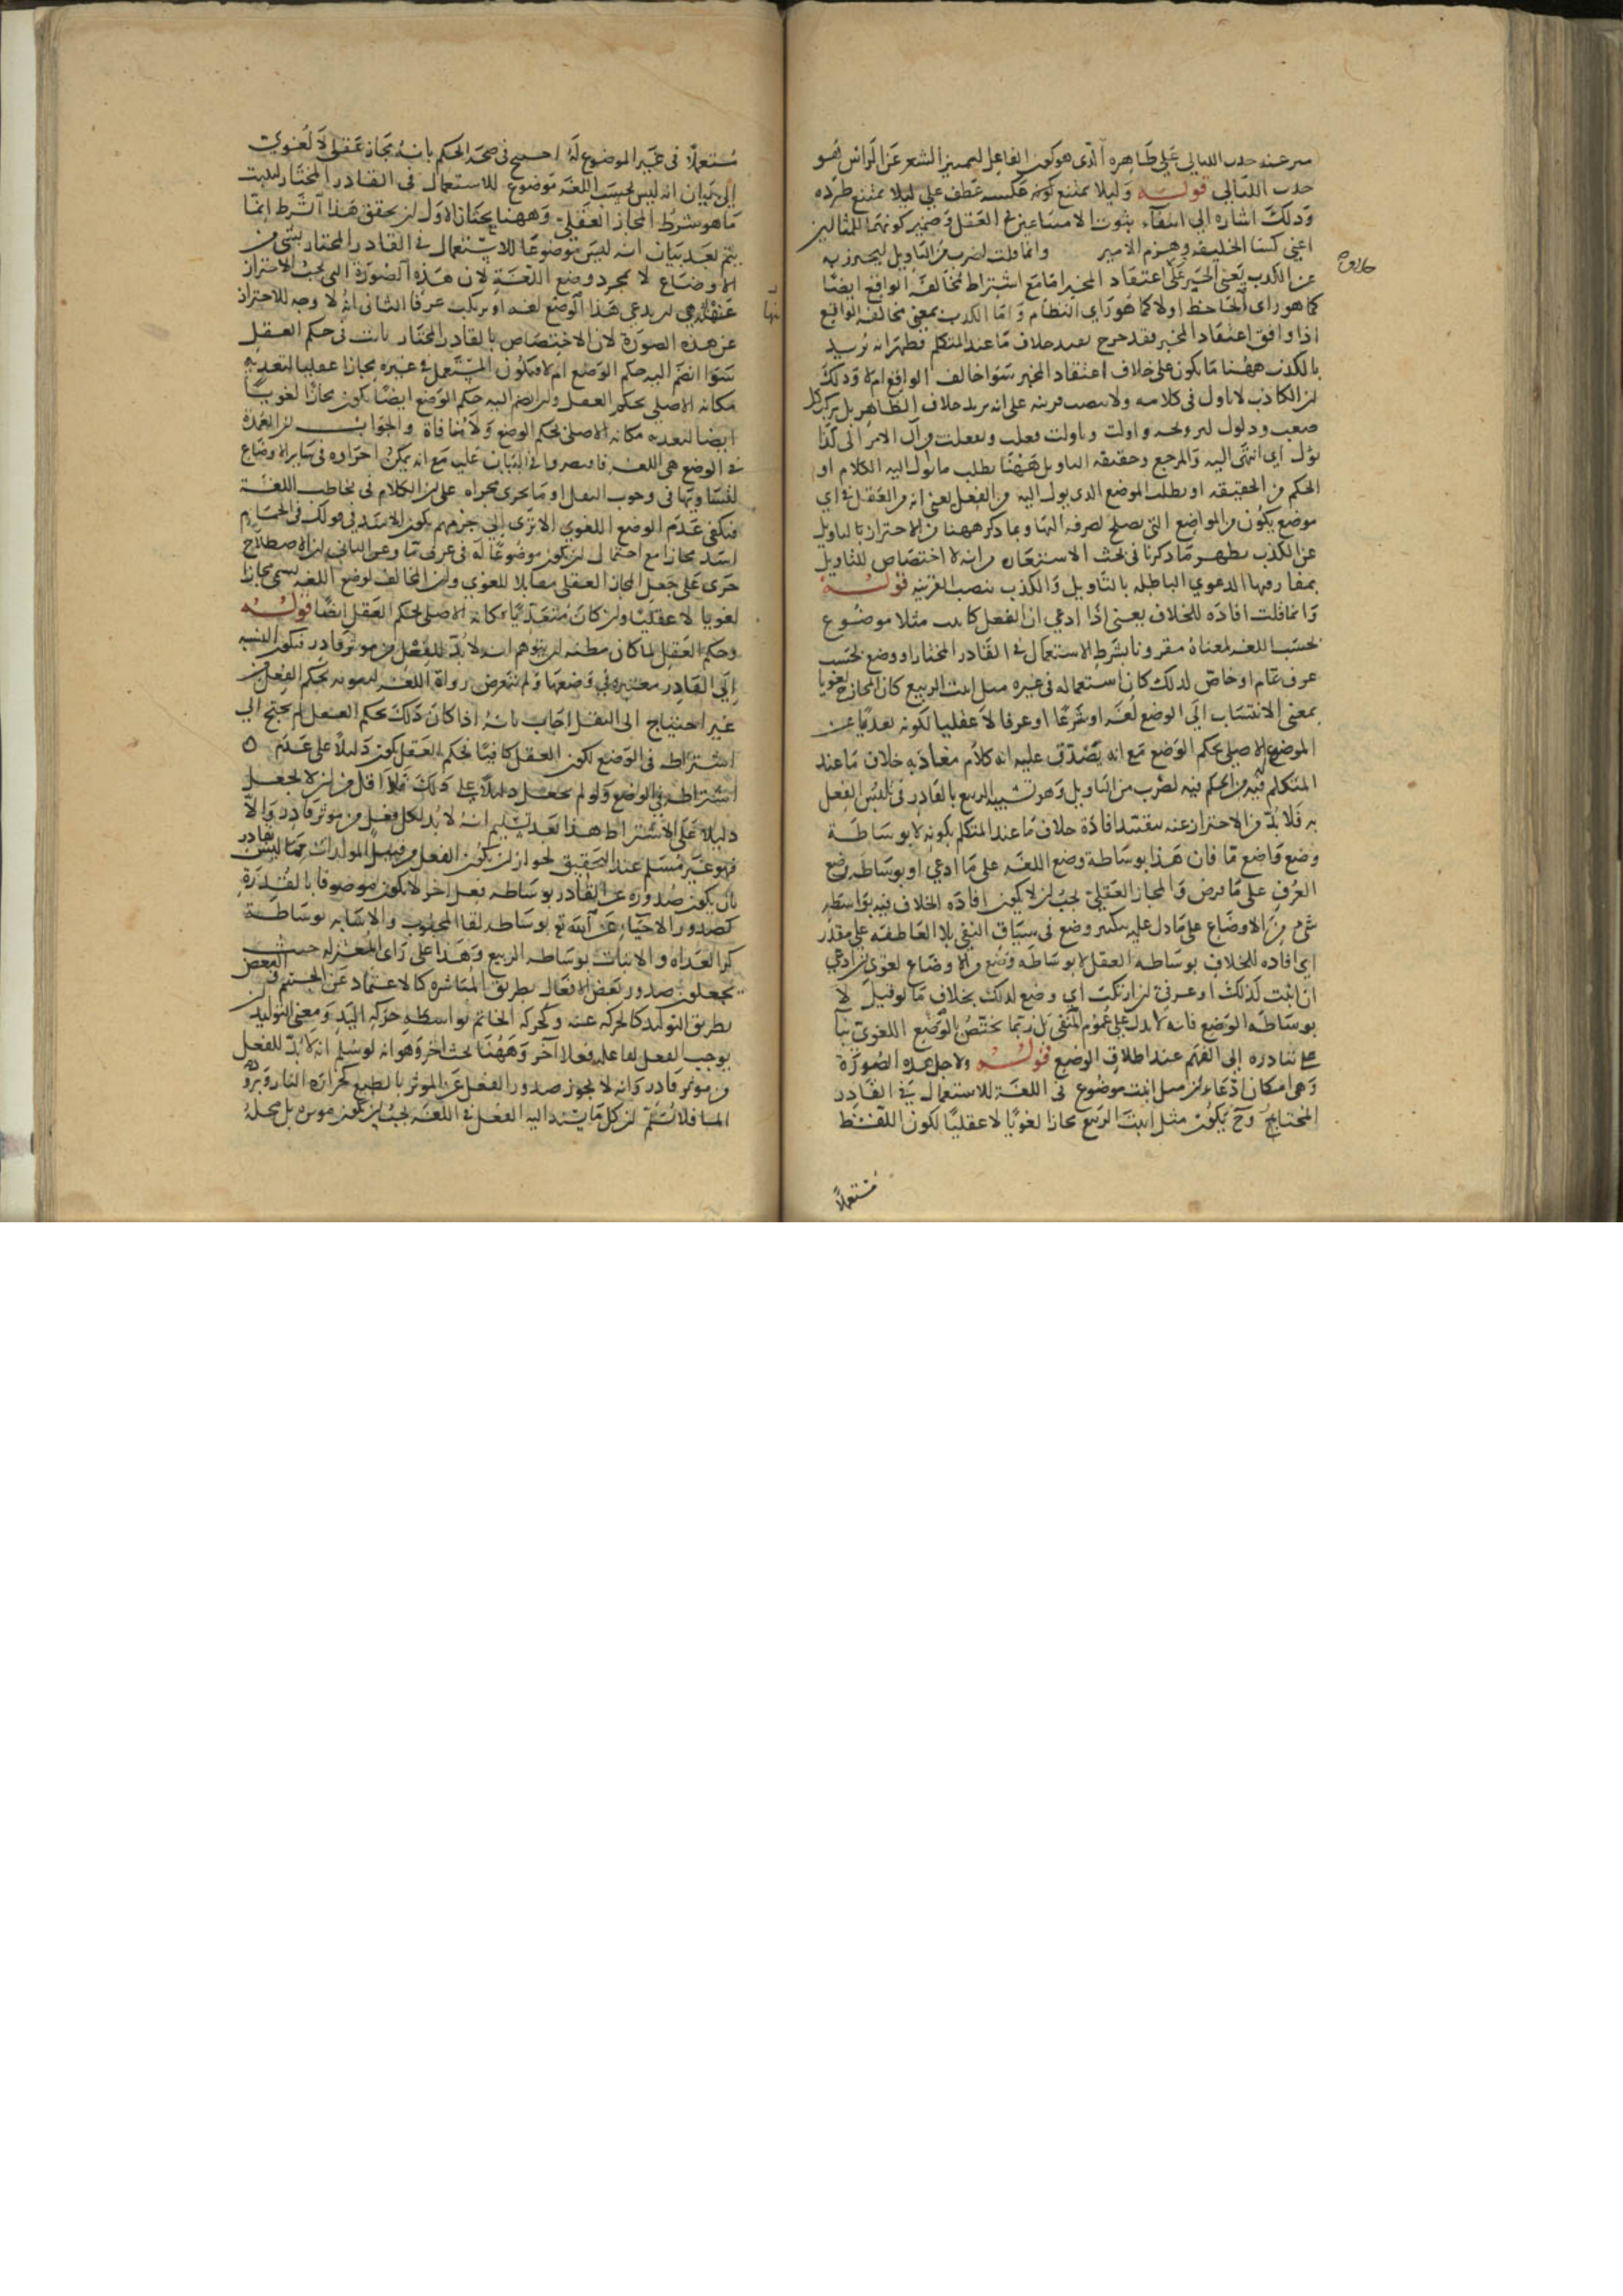 حدب الليالي قوله وليلا يمتنع كونه عكسه عطف علي ليلا يمتنع طرده
وذلك اشاره الي انتفاء ثبوت الامتناعين في العقل وضمير كونهما للمثالين
اعني كسا الخليفه وهزم الامير وانما قلت لضرب من التاويل ليحترز به
عن الكذب يعني الخبر علي اعتقاد المخبر امّا مع اشتراط مخالفة الواقع ايضًا
كما هو راي الجاحظ اولا كما هو راي النظام وامّا الكذب بمعني مخالفه الواقع
اذا وافق اعتقاد المخبر فقد خرج بعند خلاف ما عند المتكلم فظهر انه يريد
بالكذب ههنا ما يكون علي خلاف اعتقاد المخبر سوا خالف الواقع ام لا وذلك
لان الكاذب لا تاول في كلامه ولا ينصب قرينه علي انه يريد خلاف الظاهر بل يركب كل
صعب وذلول
يؤل اي انتهي اليه والمرجع وحقيقه التاويل ههنا تطلب ما يؤل اليه الكلام او
الحكم من الحقيقه او تطلب الموضع الذي يول اليه من الفعل يعني انه من العقل في اي
موضع يكون من المواضع التي يصلح لصرفه اليها وبما ذكر ههنا من الاحتراز بالتاويل
عن الكذب يظهر ما ذكرنا في بحث الاستعاره من انه لا اختصاص للتاويل
بمفارقتها الدعوي الباطله بالتاويل والكذب بنصب القرينه قوله
وانما قلت افاده للخلاف يعني اذا ادعي ان الفعل كانبت مثلا موضوع
بحسب اللغه لمعناه مقرونا بشرط الاستعمال في القادر المختار او وضع بحسب
عرف عام او خاص لذلك كان استعماله في غيره مثل انبت الربيع كان المجاز ح لغويا
بمعني الانتساب الي الوضع لغه او شرعًا او عرفا لا عقليا لكونه تعديًا عن
الموضع الاصلي بحكم الوضع مع انه يصدق عليه انه كلام مفاد به خلاف ما عند
المتكلم فيه من الحكم فيه لضرب من التاويل وهو تشبيه الربيع بالقادر في تلبس الفعل
به فلا بد من الاحتراز عنه بتقييد افادة خلاف ما عند المتكلم بكونه لا بوساطة
وضع واضع ما فان هذا بوساطة وضع اللغه علي ما ادعي او بوساطه وضع
العرف علي ما فرض والمجاز العقلي يجب ان لا يكون افاده الخلاف فيه بواسطه
شيء من الاوضاع علي ما دل عليه تنكير وضع في سياق النفي بلا العاطفه علي مقدر
اي افاده للخلاف بوساطه العقل لا بوساطه وضع من الاوضاع لغوي ان ادعي
ان انبت كذلك او عرفي ان ارتكب اي وضع لذلك بخلاف ما لو قيل لا
بوساطه الوضع فانه لا يدل علي عموم النفي بل ربما يختص الوضع اللغوي بنا
علي تبادره الي الفهم عند اطلاق الوضع قوله ولاجل هذه الصورة
وهي امكان ادعاء ان مثل انبت موضوع في اللغه للاستعمال في القادر
المختار وح يكون مثل انبت الربيع مجازا لغويًا لا عقليًا لكون اللفظ
مستعملًا
مستعملًا في غير الموضوع له احتيج في صحه الحكم بانه مجاز عقلي لا لغوي
الي بيان انه ليس بحسب اللغه موضوع للاستعمال في القادر المختار ليثبت
ما هو شرط المجاز العقلي وههنا بحثان الاول ان تحقق هذا الشرط انما
يتم بعد بيان انه ليس موضوعًا للاستعمال في القادر المختار بشئ من
الاوضاع لا بمجرد وضع اللغة لان هذه الصورة التي يجب الاحتراز
عنها هي ان يدعي هذا الوضع لغه او يرتكب عرفا الثاني انه لا وجه للاحتراز
عن هذه الصورة لان الاختصاص بالقادر المختار ثابت في حكم العقل
سوا انضم اليه حكم الوضع ام لا فيكون المستعمل في غيره مجازا عقليا لتعديه
مكانه الاصلي بحكم العقل وان انضم اليه حكم الوضع ايضًا يكون مجازًا لغويًا
ايضا لتعديه مكانه الاصلي بحكم الوضع ولا منافاة والجواب ان العمدة
في الوضع هي اللغه فاقتصروا في البيان عليه مع انه يمكن اجراوه في سائر الاوضاع
لتساويها في وجوب النقل او ما يجري مجراه علي ان الكلام في تخاطب اللغة
فيكفي عدم الوضع اللغوي الا تري الي جزمهم بكون الاسد في قولك في الحمام
اسد مجازا مع احتمال ان يكون موضوعًا له في عرف ما وعن الثاني ان الاصطلاح
جري علي جعل المجاز العقلي مقابلا للغوي وان المخالف لوضع اللغه يسمي مجازا
لغويا لا عقليًا وان كان متعديًا مكانه الاصلي بحكم العقل ايضًا قوله
وحكم العقل لما كان مظنه ان يتوهم انه لا بد للفعل من موثر قادر فتكون النسبه
الي القادر معتبره في وضعها ولم يتعرض رواة اللغه لثبوته بحكم الفعل من
غير احتياج الي النقل اجاب بانه اذا كان ذلك بحكم العقل لم يحتج الي
اشتراطه في الوضع لكون العقل كافيًا فحكم العقل يكون دليلًا علي عدم
اشتراطه في الوضع ولو لم يجعل دليلًا علي ذلك فلا اقل من ان لا يجعل
دليلًا علي الاشتراط هذا بعد تسليم انه لا بد لكل فعل من موثر قادر والا
فهو غير مسلم عند التحقيق لجواز ان يكون الفعل من قبيل المولدات مما ليس بقادر
بان يكون صدوره عن القادر بوساطه فعل اخر لا يكون موصوفا بالقدرة
كصدور الاحياء عن الله تع بوساطه لقا المحبوب والاشابه بوساطة
كر الغداه والانبات بوساطه الربيع وهذا علي راي المعتزله حيث
يجعلون صدور بعض الافعال بطريق المباشره كالاعتماد عن الجسم والبعض
بطريق التوليد كالحركه عنه وكحركه الخاتم بواسطه حركه اليد ومعني التوليد ان
يوجب الفعل لفاعله فعلا آخر وههنا بحث اخر وهو انه لو سلم انه لا بد للفعل
من موثر قادر وانه لا يجوز صدور الفعل عن الموثر بالطبع كحراره النار وبرودة
الما فلا نسلم ان كل ما يسند اليه الفعل في اللغه يجب ان يكون موثره بل محله